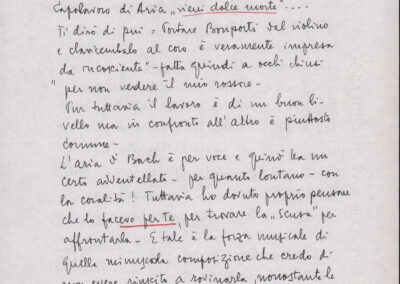 Capolavoro di Aria „vieni dolce morte"....
Ti dirò di più = Portare Bonporti dal violino
e clavicembalo al coro è veramente impresa
da incosciente" - fatta quindi a occhi chiusi
"per non vedere il mio rossore -
Pur tuttavia il lavoro è di un buon li-
vello ma in confronto all'altro è piuttosto
comune -
L'Aria di Bach è per voce e quindi ha un
certo addentellato - per quanto lontano - con
la coralità! Tuttavia ho dovuto proprio pensare
che lo facevo per Te, per trovare la „scusa" per
affrontarla - E tale è la forza musicale di
quella minuscola composizione che credo di
non essere riuscito a rovinarla, nonostante le